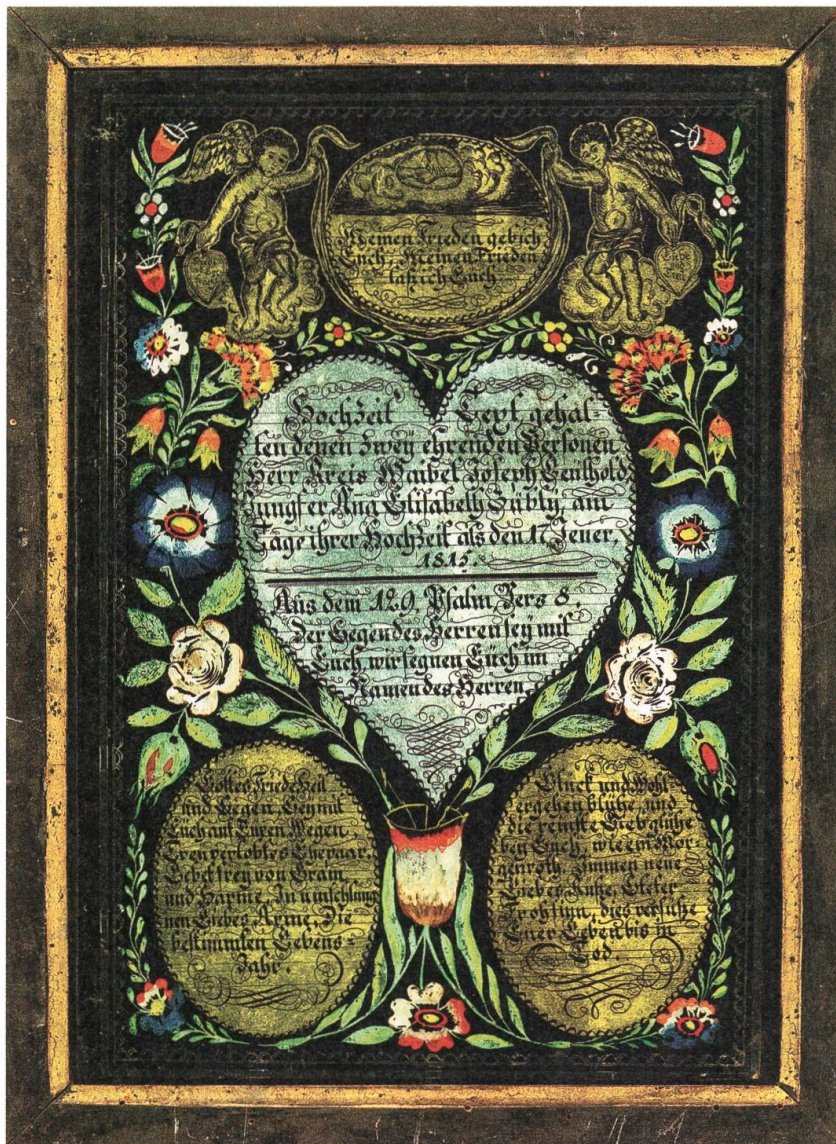 Meinen Frieden geb ich
Euch, Meinen Frieden
laß ich Euch
Liebe
und
Treu
Hochzeit Text gehal-
ten denen zwey ehrenden Personen
Herr Kreis Waibel Joseph Leuthold,
Jungfer Ana Elisabeth Hübly, am
Tage ihrer Hochzeit als den 17 Jener,
1815.
Aus dem 129, Psalm, Vers 8.
Der Segen des Herren sey mit
Euch, wir segnen Euch im
Namen des Herren.
Gottes Friede Heil
und Segen, Sey mit
Euch auf Euren Wegen.
Treu verlobtes Ehepaar,
Lebet frey von Gram
und Harme, In umschlung
nen Liebes Arme, Die
bestimmten Lebens-
Jahr.
Glück und Wohl-
ergehen blühe, und
die reinste Lieb glühe
ben Euch, wie ein Mor-
genroth, Zimmen neue
Lieber Ruhe, Steter
Frohsinn, dies versüße
Euer Leben bis in
Tod.